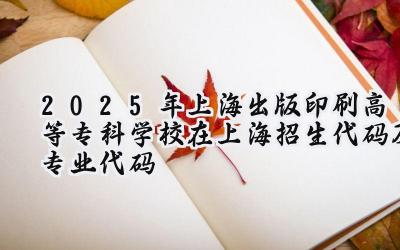 2025年上海出版印刷高
等专科学校在上海招生代码及
专业代码